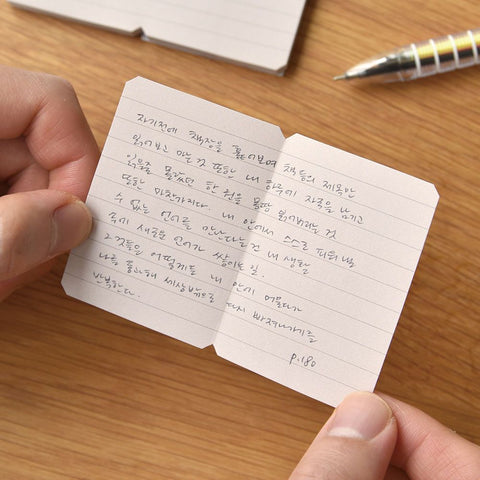 자기전에 책장을 훑어보며 책들의 제목만
읽어보고 마는 것 또한 내 하루에 자국을 남기고
읽을줄 몰랐던 한 권을 몽땅 읽어버리는 것
또한 마찬가지다. 내 안에서 스스로 피워낼
수 없는 언어를 만난다는 건 내 생활
속에 새로운 언어가 쌓이는 일.
그것들은 어떻게든 내 안에 머물다가
나를 통과해 세상밖으로 다시 빠져나가기를
반복한다.
p.180